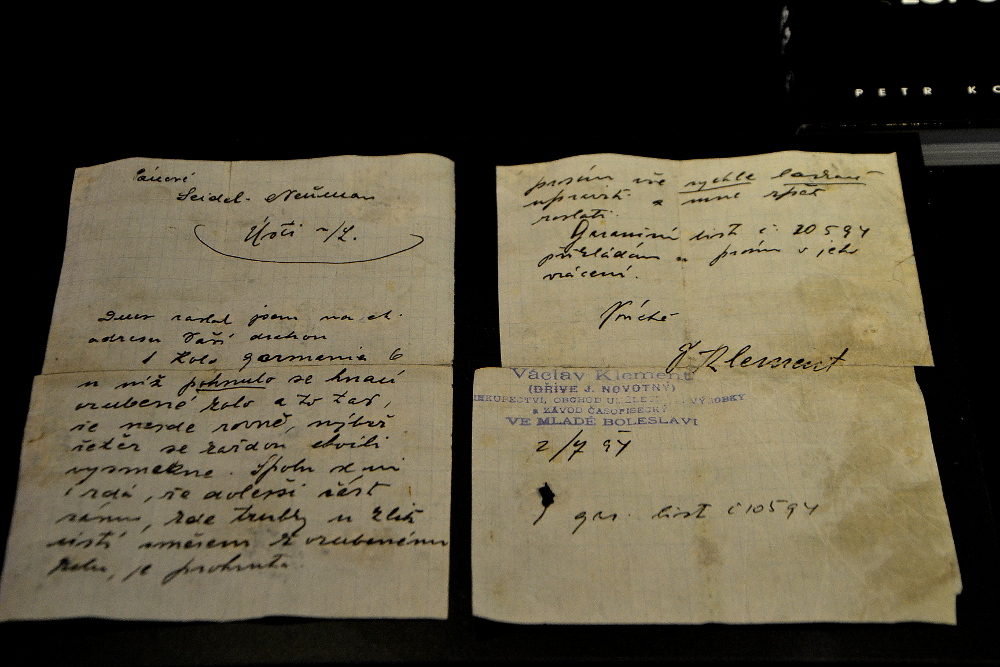 Pánové
Seidel. Neuman
Ústí n/L.
Dnes zaslal jsem na ct.
adresu Vaší drahou
1 kolo Germania 6
u níž pohnulo se hnací
ozubené kolo a to tak,
že nejde rovně, nýbrž
řetěz se každou chvíli
vysmekne. Spolu se mi
zdá, že dolejší část
rámu, kde trubky u klik
ústí směrem k ozubenému
kolu, je prohnuta.
prosím vše rychle
upraviti a mně zpět
zaslati.
Garanční list č. 10594
přikládám a prosím o jeho
vrácení.
V úctě
V. Klement
Václav Klement
(DŘÍVE J. NOVOTNÝ)
KNIHKUPECTVÍ, OBCHOD UMĚLECKÝMI VÝROBKY
a ZÁVOD ČASOPISECKÝ
VE MLADÉ BOLESLAVI
2/7 94
1 gar. list č 10594
PETR KO